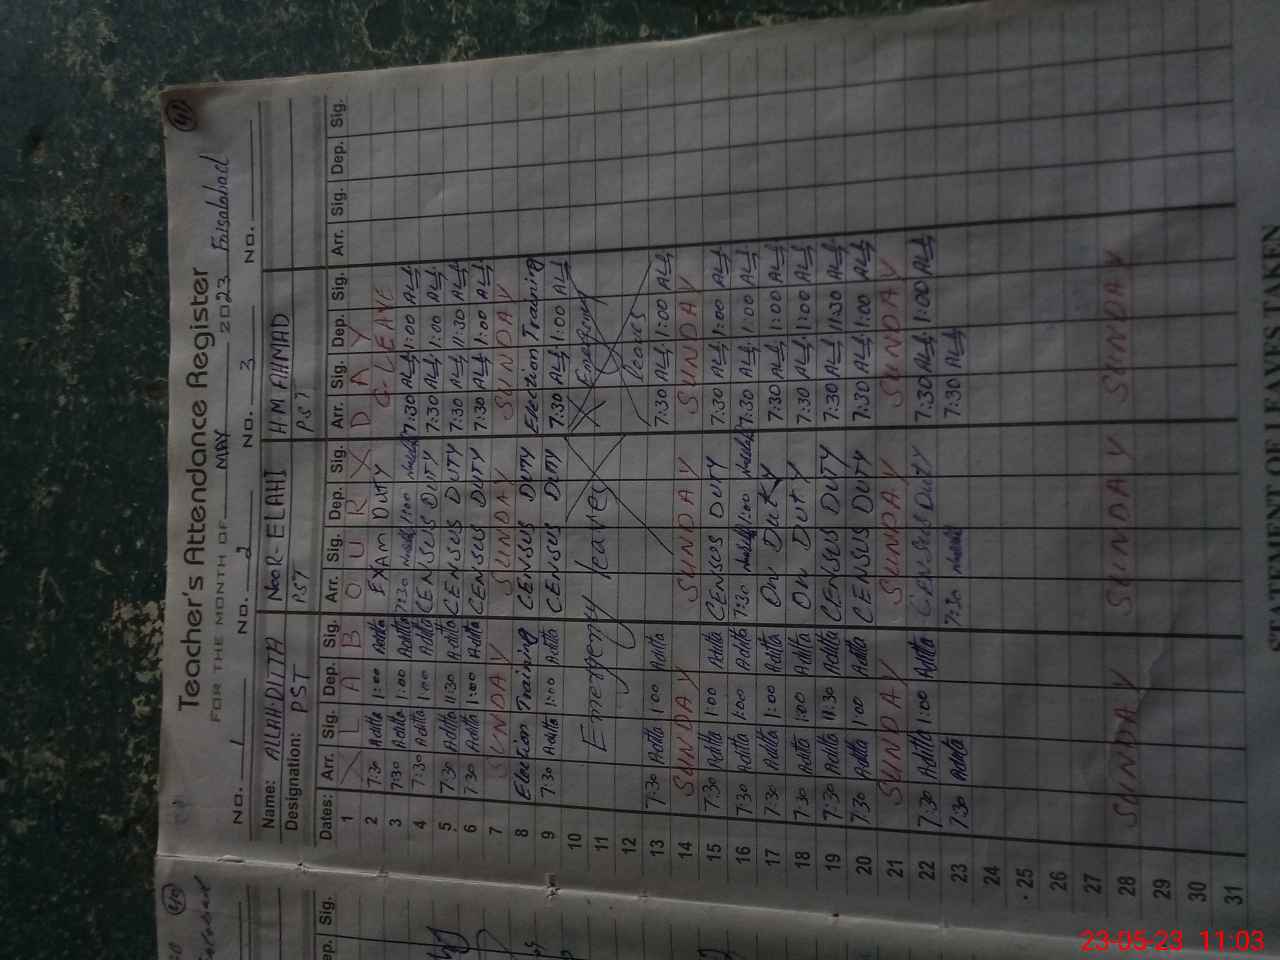 41
Teacher's Attendance Register
FOR THE MONTH OF MAY 2023 Faisalabad
NO. 1 NO. 2 NO. 3 NO.
Name: ALLAH-DITTA NooR-ELAHI H.M AHMAD
Designation: PST PST PST
Dates: Arr. Sig. Dep. Sig. Arr. Sig. Dep. Sig. Arr. Sig. Dep. Sig. Arr. Sig. Dep. Sig.
1 X L A B O U R X D A Y
2 7:30 Aditta 1:00 Aditta EXAM DUTY C-LEAVE
3 7:30 Aditta 1:00 Aditta 7:30 1:00 7:30 1:00
4 7:30 Aditta 1:00 Aditta CENSUS DUTY 7:30 1:00
5 7:30 Aditta 11:30 Aditta CENSUS DUTY 7:30 11:30
6 7:30 Aditta 1:00 Aditta CENSUS DUTY 7:30 1:00
7 SUNDAY SUNDAY SUNDAY
8 Election Training CENSUS DUTY Election Training
9 7:30 Aditta 1:00 Aditta CENSUS DUTY 7:30 1:00
10
11 Emergency leaves Emergency
12 leaves
13 7:30 Aditta 1:00 Aditta 7:30 1:00
14 SUNDAY SUNDAY SUNDAY
15 7:30 Aditta 1:00 Aditta CENSUS DUTY 7:30 1:00
16 7:30 Aditta 1:00 Aditta 7:30 1:00 7:30 1:00
17 7:30 Aditta 1:00 Aditta On Duty 7:30 1:00
18 7:30 Aditta 1:00 Aditta On Duty 7:30 1:00
19 7:30 Aditta 11:30 Aditta CENSUS DUTY 7:30 11:30
20 7:30 Aditta 1:00 Aditta CENSUS DUTY 7:30 1:00
21 SUNDAY SUNDAY SUNDAY
22 7:30 Aditta 1:00 Aditta CENSUS DUTY 7:30 1:00
23 7:30 Aditta 7:30 7:30
24
25
26
27
28 SUNDAY SUNDAY SUNDAY
29
30
31
STATEMENT OF LEAVES TAKEN
40
ep. Sig.
23-05-23 11:03